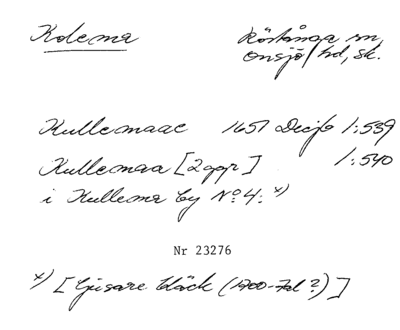 Kolema
Röstånga sn,
Onsjö hd, Sk.
Kullemaae 1651 Decjb 1:539
Kullemaa [2 ggr] 1:540
i Kullema by No 4. x)
Nr 23276
x) [ljusare bläck (1700-tal?)]